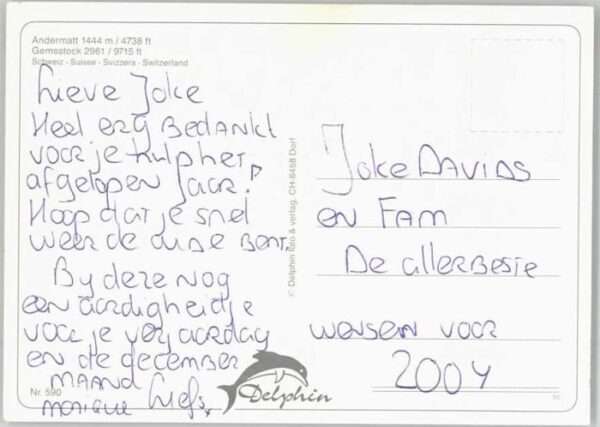 Andermatt 1444 m / 4738 ft
Gemsstock 2961 / 9715 ft
Schweiz - Suisse - Svizzera - Switzerland
Lieve Joke
Heel erg Bedankt
voor je hulp het
afgelopen Jaar!
Hoop dat je snel
weer de oude Bent.
By deze nog
een aardigheidje
voor je verjaardag
en de december
MAAND
monique Liefs,
Nr. 590
Delphin
© Delphin foto & verlag, CH-6458 Dorf
Joke DAVIDS
en FAM
De allerbeste
wensen voor
2004